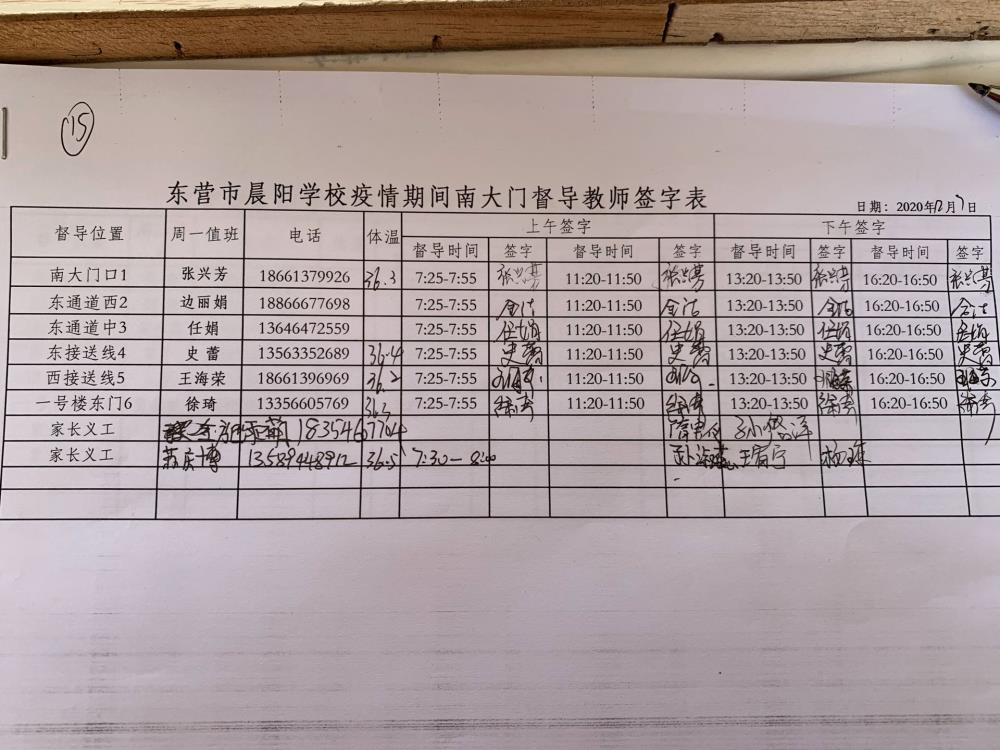 15
东营市晨阳学校疫情期间南大门督导教师签字表
日期：2020年12月7日
督导位置 周一值班 电话 体温 上午签字 下午签字
督导时间 签字 督导时间 签字 督导时间 签字 督导时间 签字
南大门口1 张兴芳 18661379926 36.3 7:25-7:55 张兴芳 11:20-11:50 张兴芳 13:20-13:50 张兴芳 16:20-16:50 张兴芳
东通道西2 边丽娟 18866677698 7:25-7:55 11:20-11:50 13:20-13:50 16:20-16:50
东通道中3 任娟 13646472559 7:25-7:55 任娟 11:20-11:50 任娟 13:20-13:50 任娟 16:20-16:50 任娟
东接送线4 史蕾 13563352689 36.4 7:25-7:55 史蕾 11:20-11:50 史蕾 13:20-13:50 史蕾 16:20-16:50 史蕾
西接送线5 王海荣 18661396969 36.2 7:25-7:55 11:20-11:50 13:20-13:50 16:20-16:50
一号楼东门6 徐琦 13356605769 36.3 7:25-7:55 徐琦 11:20-11:50 徐琦 13:20-13:50 徐琦 16:20-16:50 徐琦
家长义工 18354677024
家长义工 苏庆博 13589448912 36.5 7:30-8:00 杨琳